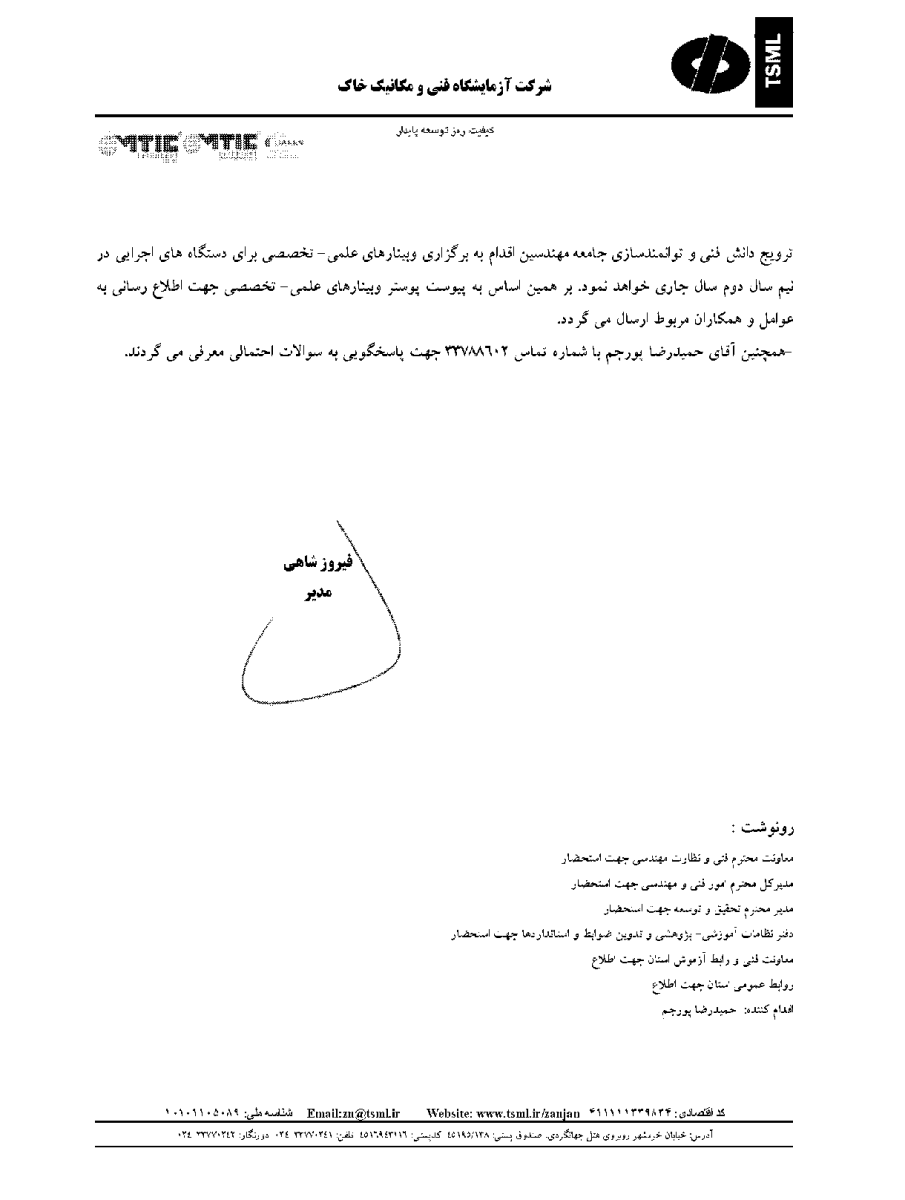 TSML
شرکت آزمایشگاه فنی و مکانیک خاک
کیفیت رمز توسعه پایدار
ترویج دانش فنی و توانمندسازی جامعه مهندسین اقدام به برگزاری وبینارهای علمی- تخصصی برای دستگاه های اجرایی در
نیم سال دوم سال جاری خواهد نمود. بر همین اساس به پیوست پوستر وبینارهای علمی- تخصصی جهت اطلاع رسانی به
عوامل و همکاران مربوط ارسال می گردد.
-همچنین آقای حمیدرضا پورجم با شماره تماس ۳۳۷۸۸۶۰۲ جهت پاسخگویی به سوالات احتمالی معرفی می گردند.
فیروز شاهی
مدیر
رونوشت :
معاونت محترم فنی و نظارت مهندسی جهت استحضار
مدیرکل محترم امور فنی و مهندسی جهت استحضار
مدیر محترم تحقیق و توسعه جهت استحضار
دفتر نظامات آموزشی- پژوهشی و تدوین ضوابط و استانداردها جهت استحضار
معاونت فنی و رابط آزموش استان جهت اطلاع
روابط عمومی استان جهت اطلاع
اقدام کننده: حمیدرضا پورجم
کد اقتصادی: ۴۱۱۱۱۱۳۳۹۸۳۴ Website: www.tsml.ir/zanjan Email:zn@tsml.ir شناسه ملی: ۱۰۱۰۱۱۰۵۰۸۹
آدرس: خیابان خرمشهر روبروی هتل جهانگردی، صندوق پستی: ۴۵۱۹۵/۱۳۸ کدپستی: ۴۵۱۶۹۴۳۱۱۶ تلفن: ۳۳۷۷۰۲۴۱ ۰۲۴ دورنگار: ۳۳۷۷۰۲۴۲ ۰۲۴